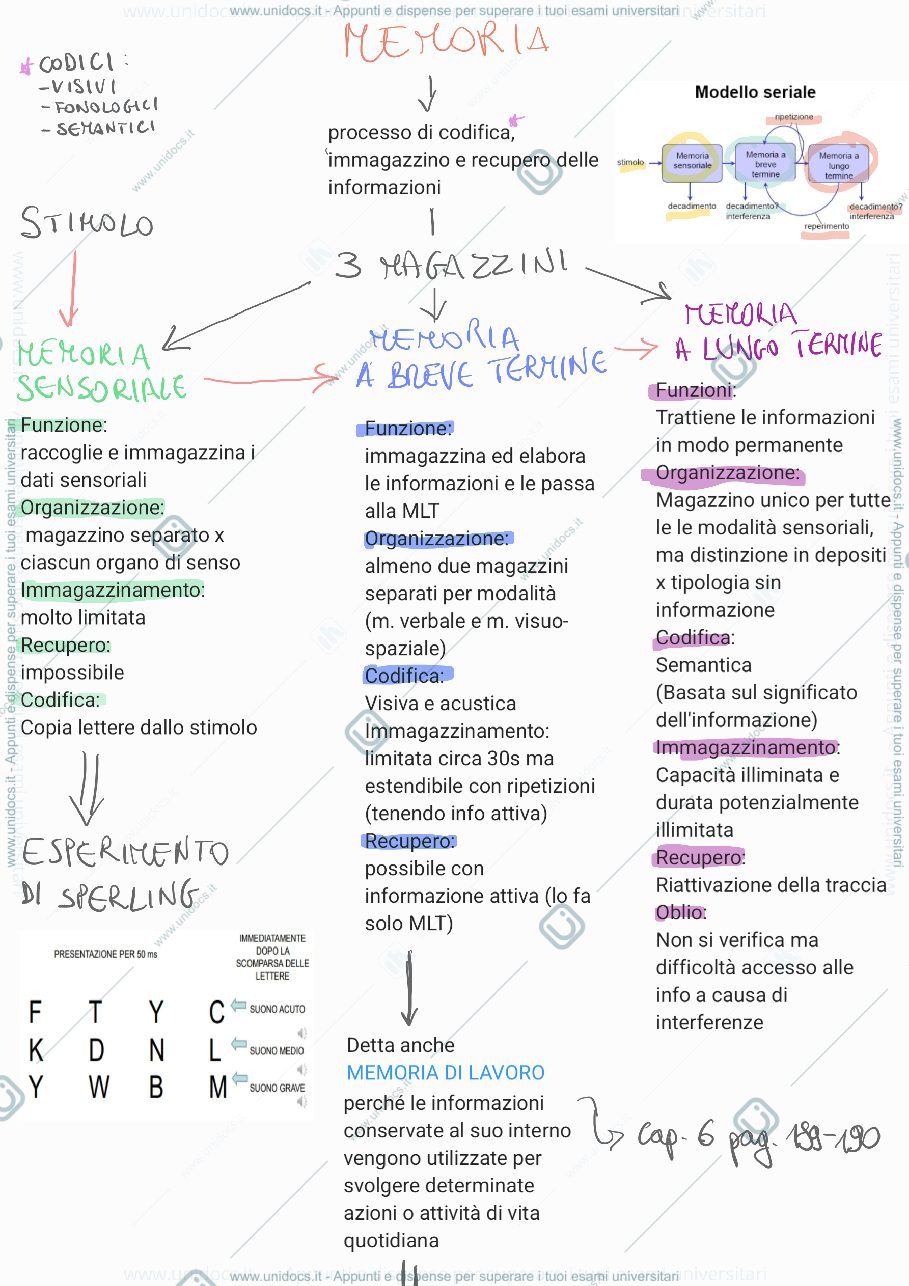 www.unidocs.it - Appunti e dispense per superare i tuoi esami universitari
MEMORIA
* CODICI:
- VISIVI
- FONOLOGICI
- SEMANTICI
processo di codifica,*
immagazzino e recupero delle
informazioni
Modello seriale
ripetizione
stimolo
Memoria
sensoriale
Memoria a
breve
termine
Memoria a
lungo
termine
decadimento
decadimento?
interferenza
decadimento?
interferenza
reperimento
STIMOLO
3 MAGAZZINI
MEMORIA
SENSORIALE
Funzione:
raccoglie e immagazzina i
dati sensoriali
Organizzazione:
magazzino separato x
ciascun organo di senso
Immagazzinamento:
molto limitata
Recupero:
impossibile
Codifica:
Copia lettere dallo stimolo
ESPERIMENTO
DI SPERLING
PRESENTAZIONE PER 50 ms
IMMEDIATAMENTE
DOPO LA
SCOMPARSA DELLE
LETTERE
F T Y C SUONO ACUTO
K D N L SUONO MEDIO
Y W B M SUONO GRAVE
MEMORIA
A BREVE TERMINE
Funzione:
immagazzina ed elabora
le informazioni e le passa
alla MLT
Organizzazione:
almeno due magazzini
separati per modalità
(m. verbale e m. visuo-
spaziale)
Codifica:
Visiva e acustica
Immagazzinamento:
limitata circa 30s ma
estendibile con ripetizioni
(tenendo info attiva)
Recupero:
possibile con
informazione attiva (lo fa
solo MLT)
Detta anche
MEMORIA DI LAVORO
perché le informazioni
conservate al suo interno
vengono utilizzate per
svolgere determinate
azioni o attività di vita
quotidiana
Cap. 6 pag. 189-190
MEMORIA
A LUNGO TERMINE
Funzioni:
Trattiene le informazioni
in modo permanente
Organizzazione:
Magazzino unico per tutte
le le modalità sensoriali,
ma distinzione in depositi
x tipologia sin
informazione
Codifica:
Semantica
(Basata sul significato
dell'informazione)
Immagazzinamento:
Capacità illiminata e
durata potenzialmente
illimitata
Recupero:
Riattivazione della traccia
Oblio:
Non si verifica ma
difficoltà accesso alle
info a causa di
interferenze
www.unidocs.it - Appunti e dispense per superare i tuoi esami universitari
www.unidocs.it - Appunti e dispense per superare i tuoi esami universitari
www.unidocs.it - Appunti e dispense per superare i tuoi esami universitari